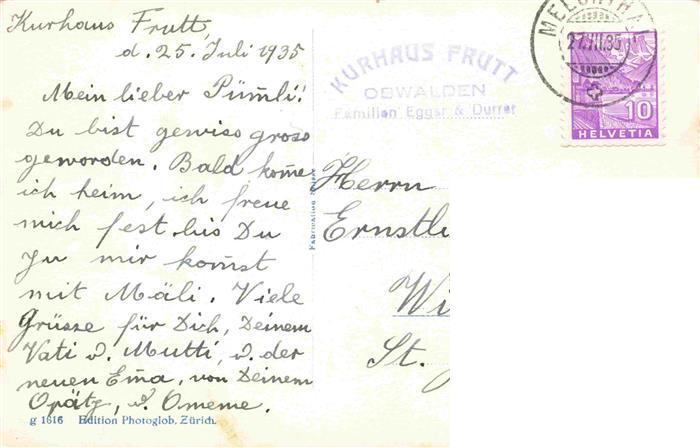 Kurhaus Frutt,
d. 25. Juli 1935
Mein lieber Pümli!
Du bist gewiss gross
geworden. Bald kom̄e
ich heim, ich freue
mich fest bis Du
zu mir kom̄st
mit Mäli. Viele
Grüsse für Dich, Deinem
Vati u. Mutti, u. der
neuen Em̄a, von Deinem
Opätz, u. Omeme.
g 1616 Edition Photoglob, Zürich.
KURHAUS FRUTT
OBWALDEN
Familien Egger & Durrer
27.VII.35
10
HELVETIA
Herrn
Ernstli
Wi
St.